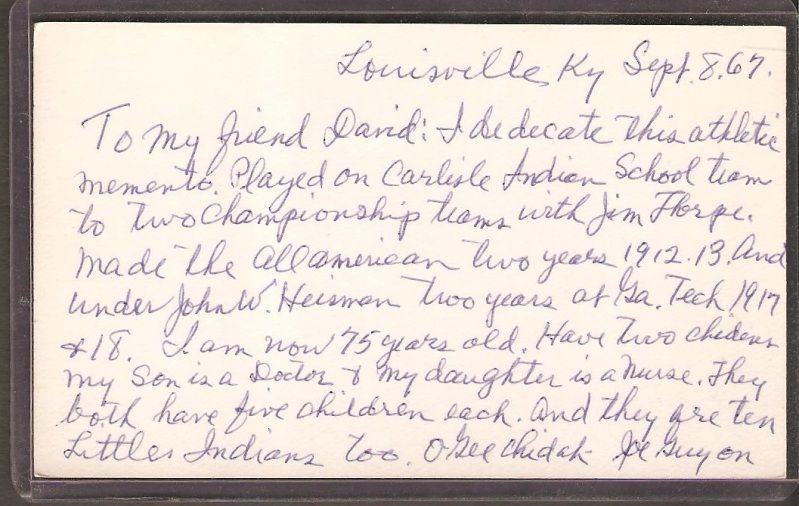 Louisville, Ky Sept. 8. 67.
To my friend David: I dedecate this athletic
memento. Played on Carlisle Indian School team
to two championship teams with Jim Thorpe.
Made the All american two years 1912. 13. And
under John W. Heisman two years at Ga. Tech 1917
+ 18. I am now 75 years old. Have two childern
my Son is a Doctor & my daughter is a nurse. They
both have five children each. And they are ten
Littles Indians too. O Gee Chidah Joe Guyon